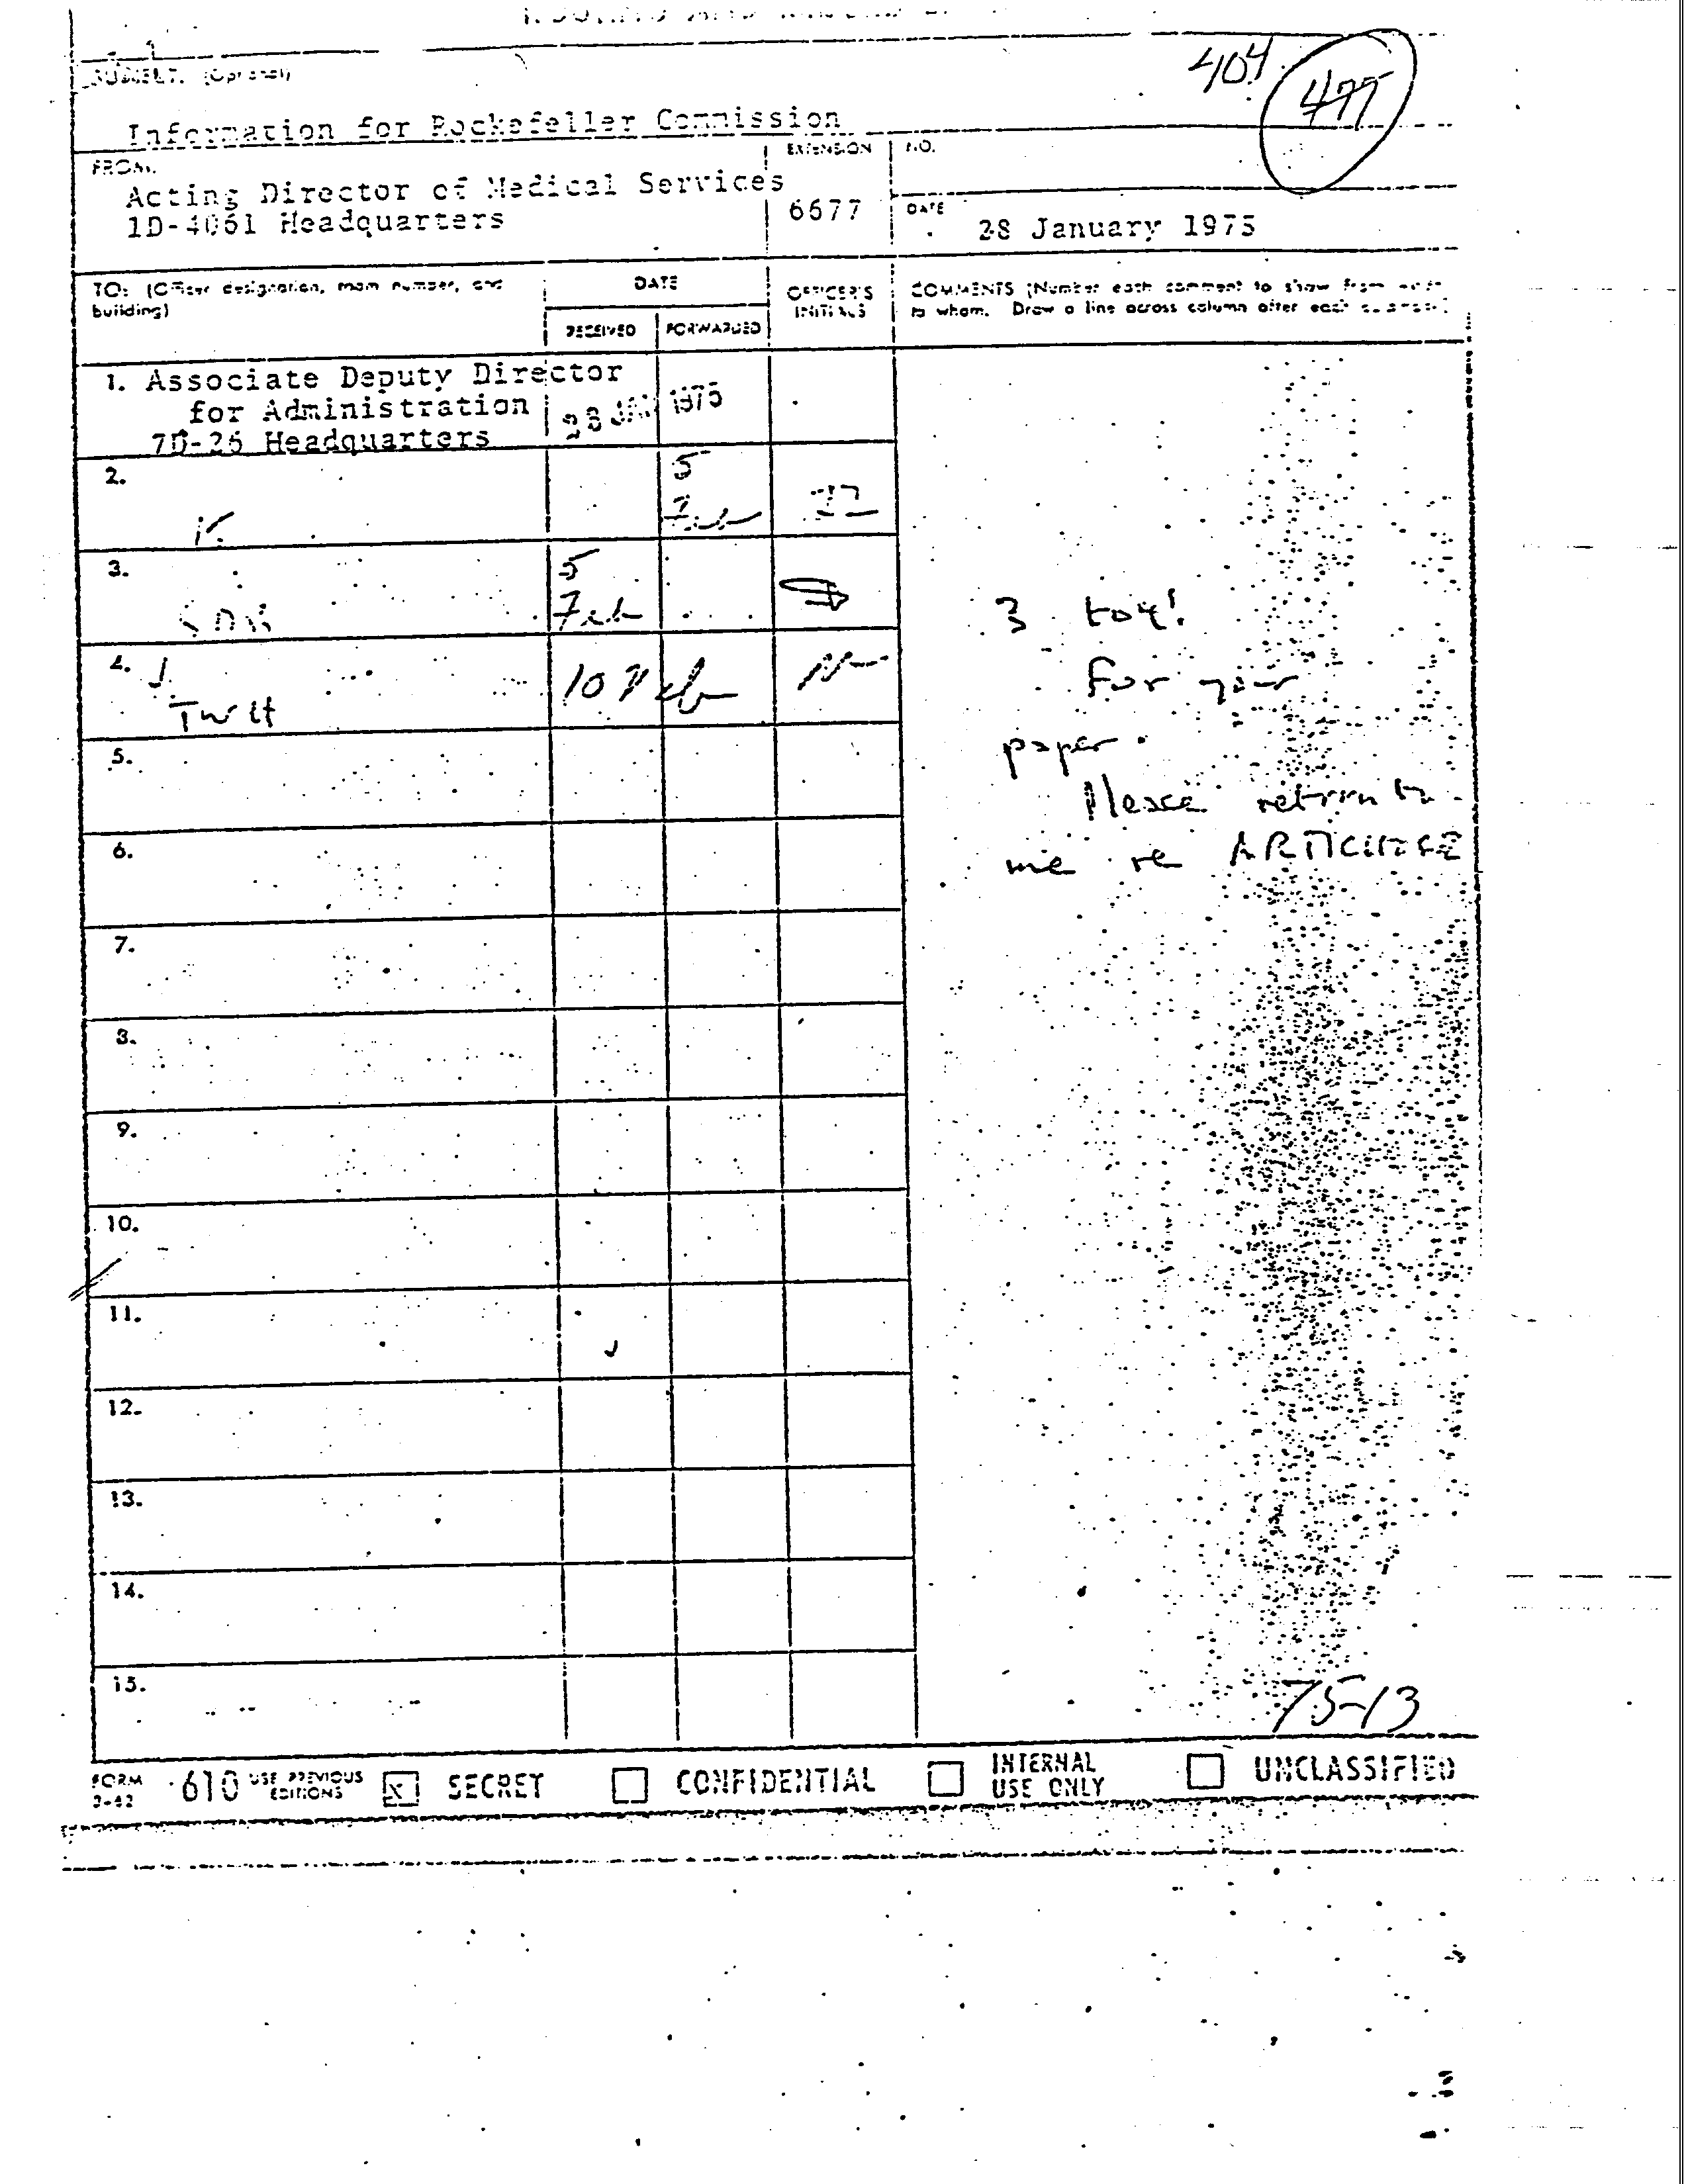 ROUTING AND RECORD
SUBJECT: (Optional)
404
Information for Rockefeller Commission
FROM:
EXTENSION
NO.
Acting Director of Medical Services
1D-4061 Headquarters
6677
DATE
28 January 1975
TO: (Officer designation, room number, and building)
DATE
OFFICER'S INITIALS
COMMENTS (Number each comment to show from whom
to whom. Draw a line across column after each comment.)
RECEIVED
FORWARDED
1. Associate Deputy Director
for Administration
7D-26 Headquarters
28 JAN 1975
2.
5
Feb
3.
5
Feb
3 to 4:
For your
paper.
Please return to
me re ARTICHOKE
4.
10 Feb
5.
6.
7.
8.
9.
10.
11.
12.
13.
14.
15.
75-13
FORM 3-62
610
USE PREVIOUS EDITIONS
X
SECRET
CONFIDENTIAL
INTERNAL
USE ONLY
UNCLASSIFIED